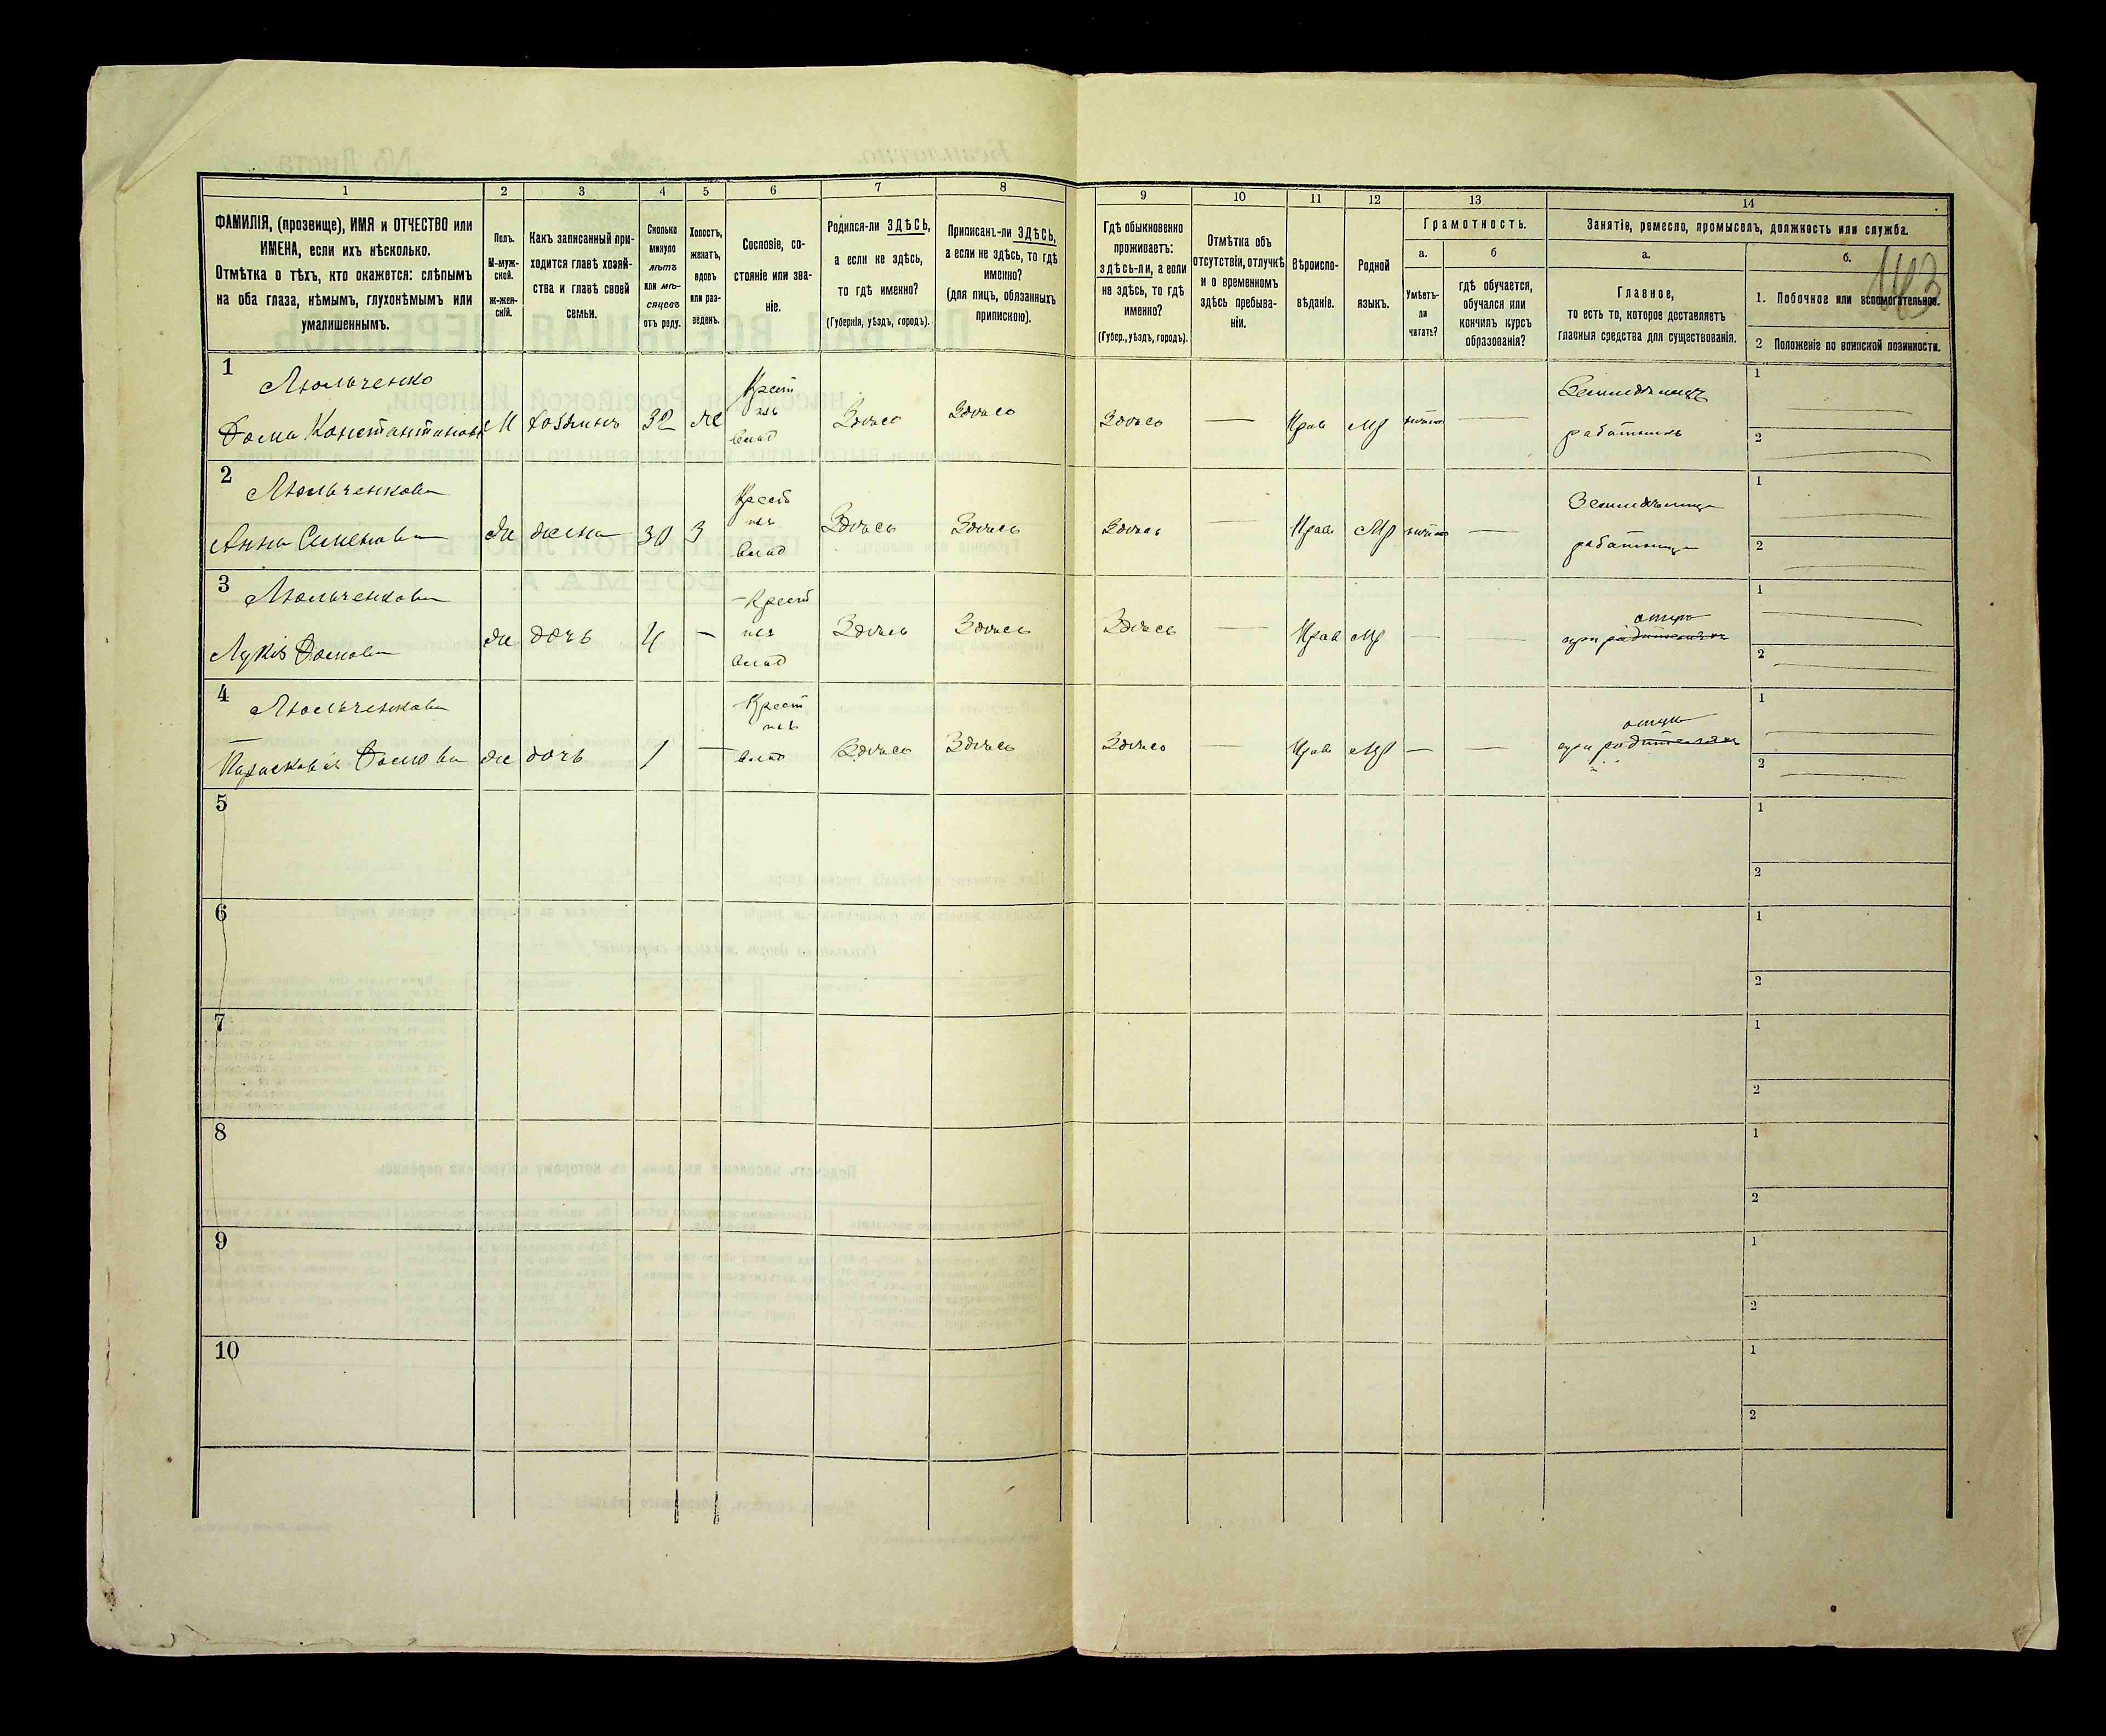 1 2 3 4 5 6 7 8 9 10 11 12 13 14
ФАМИЛІЯ, (прозвище), ИМЯ и ОТЧЕСТВО или
ИМЕНА, если ихъ нѣсколько.
Отмѣтка о тѣхъ, кто окажется: слѣпымъ
на оба глаза, нѣмымъ, глухонѣмымъ или
умалишеннымъ.
Полъ.
М-муж-
ской.
ж-жен-
скій.
Какъ записанный при-
ходится главѣ хозяй-
ства и главѣ своей
семьи.
Сколько
минуло
лѣтъ
или мѣ-
сяцевъ
отъ роду.
Холостъ,
женатъ,
вдовъ
или раз-
веденъ.
Сословіе, со-
стояніе или зва-
ніе.
Родился-ли ЗДѢСЬ,
а если не здѣсь,
то гдѣ именно?
(Губернія, уѣздъ, городъ).
Приписанъ-ли ЗДѢСЬ,
а если не здѣсь, то гдѣ
именно?
(для лицъ, обязанныхъ
припискою).
Гдѣ обыкновенно
проживаетъ:
здѣсь-ли, а если
не здѣсь, то гдѣ
именно?
(Губер., уѣздъ, городъ).
Отмѣтка объ
отсутствіи, отлучкѣ
и о временномъ
здѣсь пребыва-
ніи.
Вѣроиспо-
вѣданіе.
Родной
языкъ.
Грамотность.
а.
Умѣетъ-
ли
читать?
б
гдѣ обучается,
обучался или
кончилъ курсъ
образованія?
Занятіе, ремесло, промыселъ, должность или служба.
а.
Главное,
то есть то, которое доставляетъ
главныя средства для существованія.
б.
143
1. Побочное или вспомогательное.
2 Положеніе по воинской повинности.
1
Люльченко
Фома Константиновъ М хозяинъ 32 же Крест Влад Здѣсь Здѣсь Здѣсь — Прав Мр —
работникъ
1
2
2
Люльченкова
Анна Семенова же жена 30 З Крест Влад Здѣсь Здѣсь Здѣсь — Прав Мр —
работница
1
2
3
Люльченкова
Лукія Фомова же дочь 4 — Крест Влад Здѣсь Здѣсь Здѣсь — Прав Мр — —
при родителяхъ
1
2
4
Люльченкова
Параскавія Фомова же дочь 1 — Крест Влад Здѣсь Здѣсь Здѣсь — Прав Мр — —
при родителяхъ
1
2
5
1
2
6
1
2
7
1
2
8
1
2
9
1
2
10
1
2